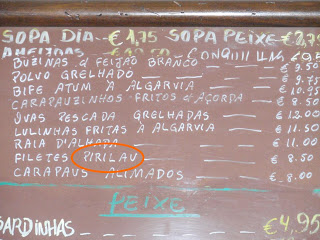 SOPA DIA — €1,75 SOPA PEIXE — €2,75
AMEIJOAS
BUZINAS d FEIJAO BRANCO € 9.50
POLVO GRELHADO — € 9.75
BIFE ATUM À ALGARVIA — € 10.95
CARAPAUZINHOS FRITOS d AÇORDA € 8.50
DUAS PESCADA GRELHADAS — € 12.00
LULINHAS FRITAS À ALGARVIA — € 11.50
RAIA D'ALHADA — € 11.00
FILETES PIRILAU — € 8.50
CARAPAUS ALIMADOS — € 8.00
PEIXE
SARDINHAS — €4,95